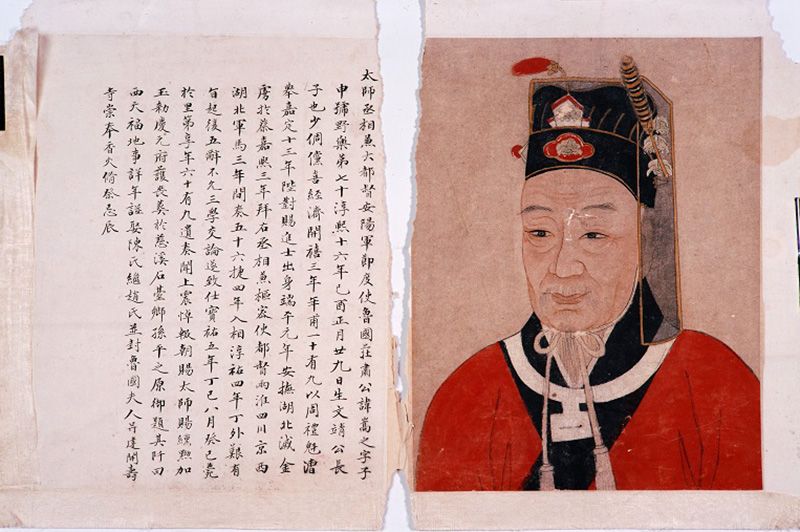 太師丞相兼大都督安陽軍節度使魯國莊肅公諱嵩之字子
申號野樂第七十淳熙十六年己酉正月廿九日生文靖公長
子也少倜儻喜經濟開禧三年年甫一十有九以周禮魁漕
舉嘉定十三年陛對賜進士出身端平元年安撫湖北滅金
虜於蔡嘉熙三年拜右丞相兼樞密使都督兩淮四川京西
湖北軍馬三年間奏五十六捷四年入相淳祐四年丁外艱有
旨起復五辭不允三學交論遂致仕寶祐五年丁巳八月癸巳薨
於里第享年六十有九遺奏聞上震悼輟朝賜太師賜加
玉勅慶元府護喪葬於慈溪石臺鄉孫平之原御題其阡曰
西天福地事詳年謚娶陳氏繼趙氏並封魯國夫人并建開壽
寺崇奉香火脩祭忌辰